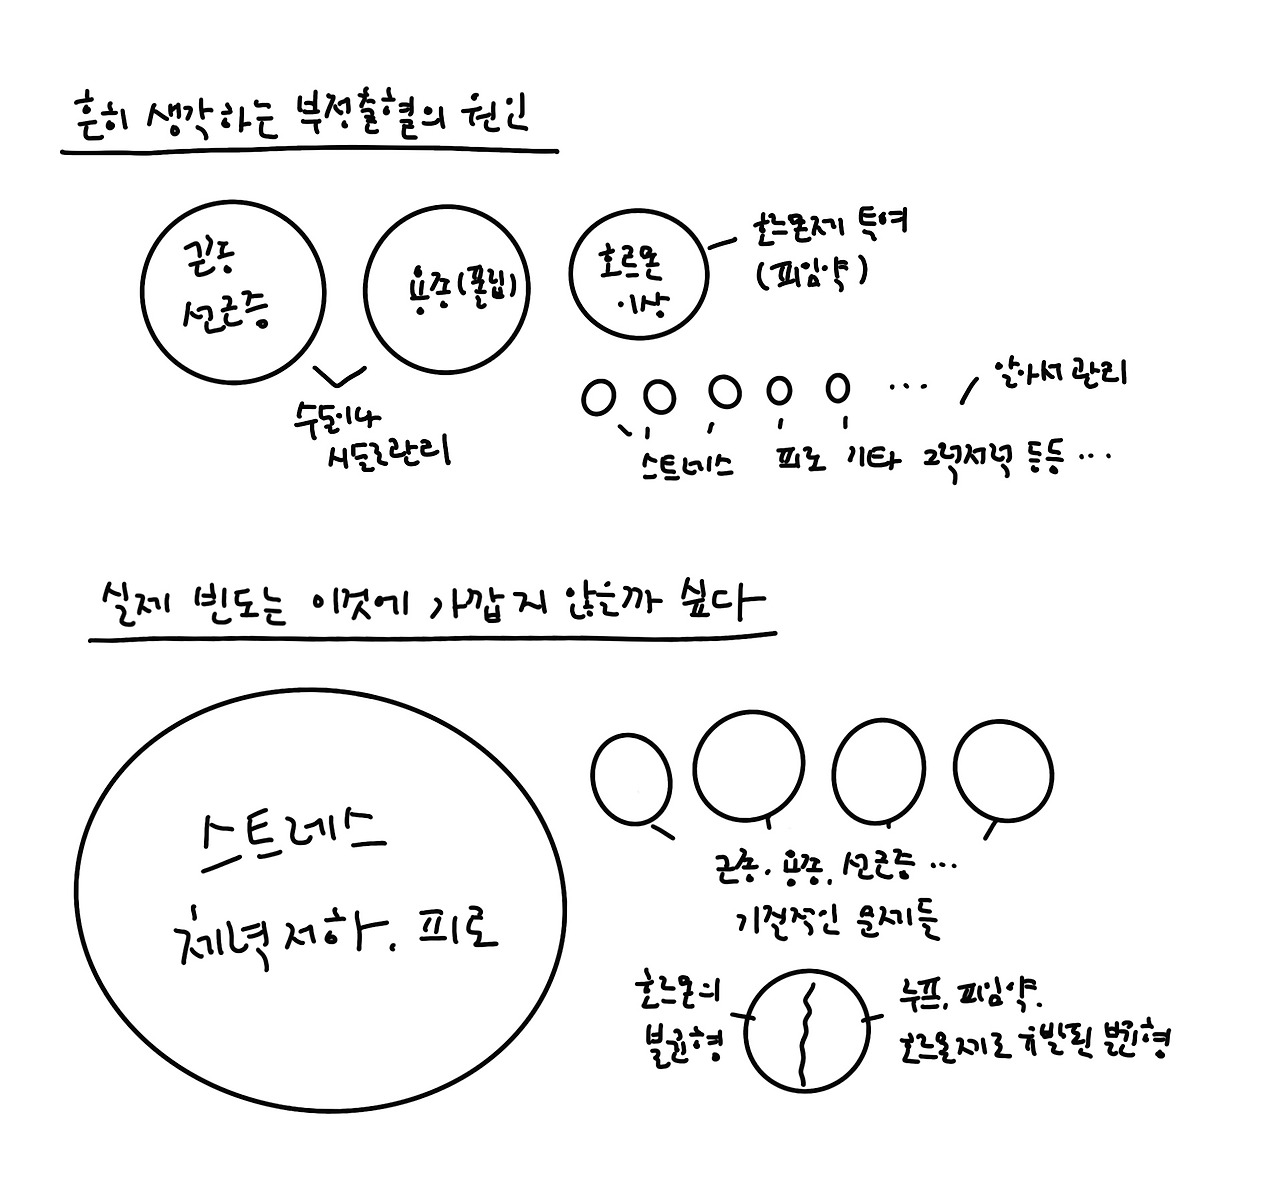 흔히 생각하는 부정출혈의 원인
근종
선근증
용종(폴립)
호르몬
이상
호르몬제 투여
(피임약)
수술이나
시술로관리
알아서 관리
스트레스 피로 기타 그럭저럭 등등 ...
실제 빈도는 이것에 가깝지 않은까 싶다
스트레스
체력저하. 피로
근종. 용종. 선근증 ...
기질적인 문제들
호르몬의
불균형
루프. 피임약.
호르몬제로 유발된 불균형